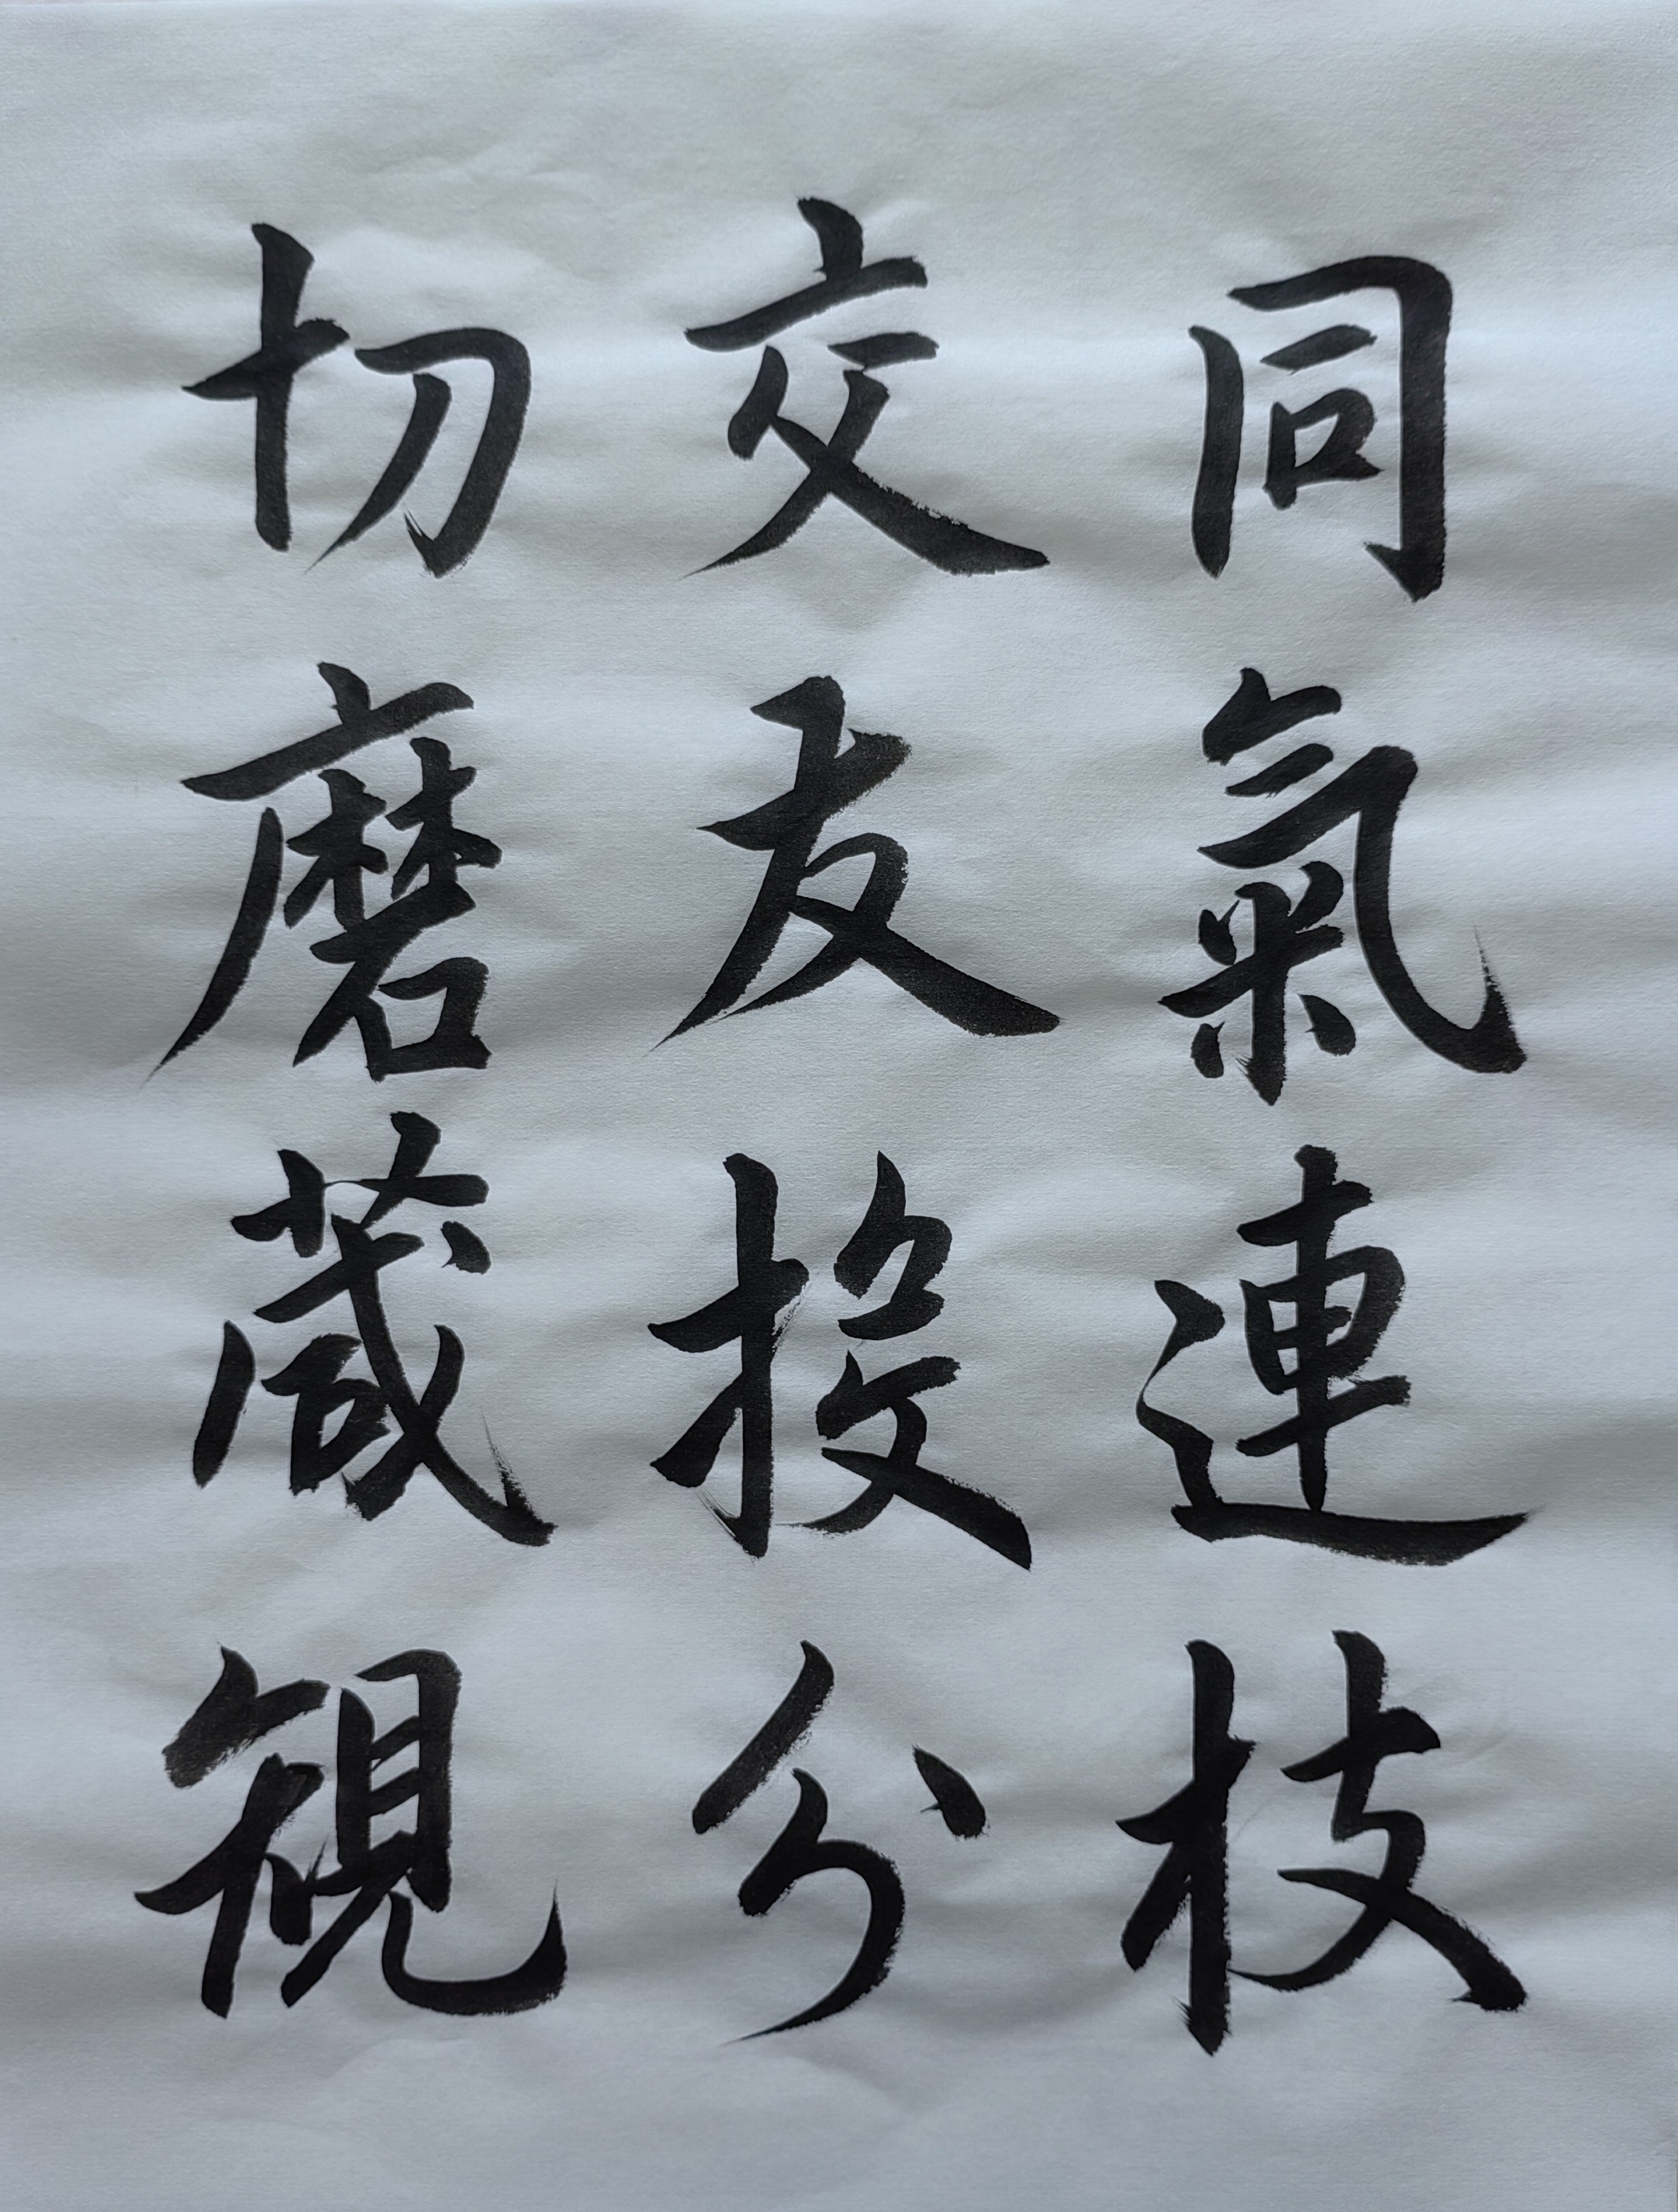 同氣連枝
交友投分
切磨蔵規